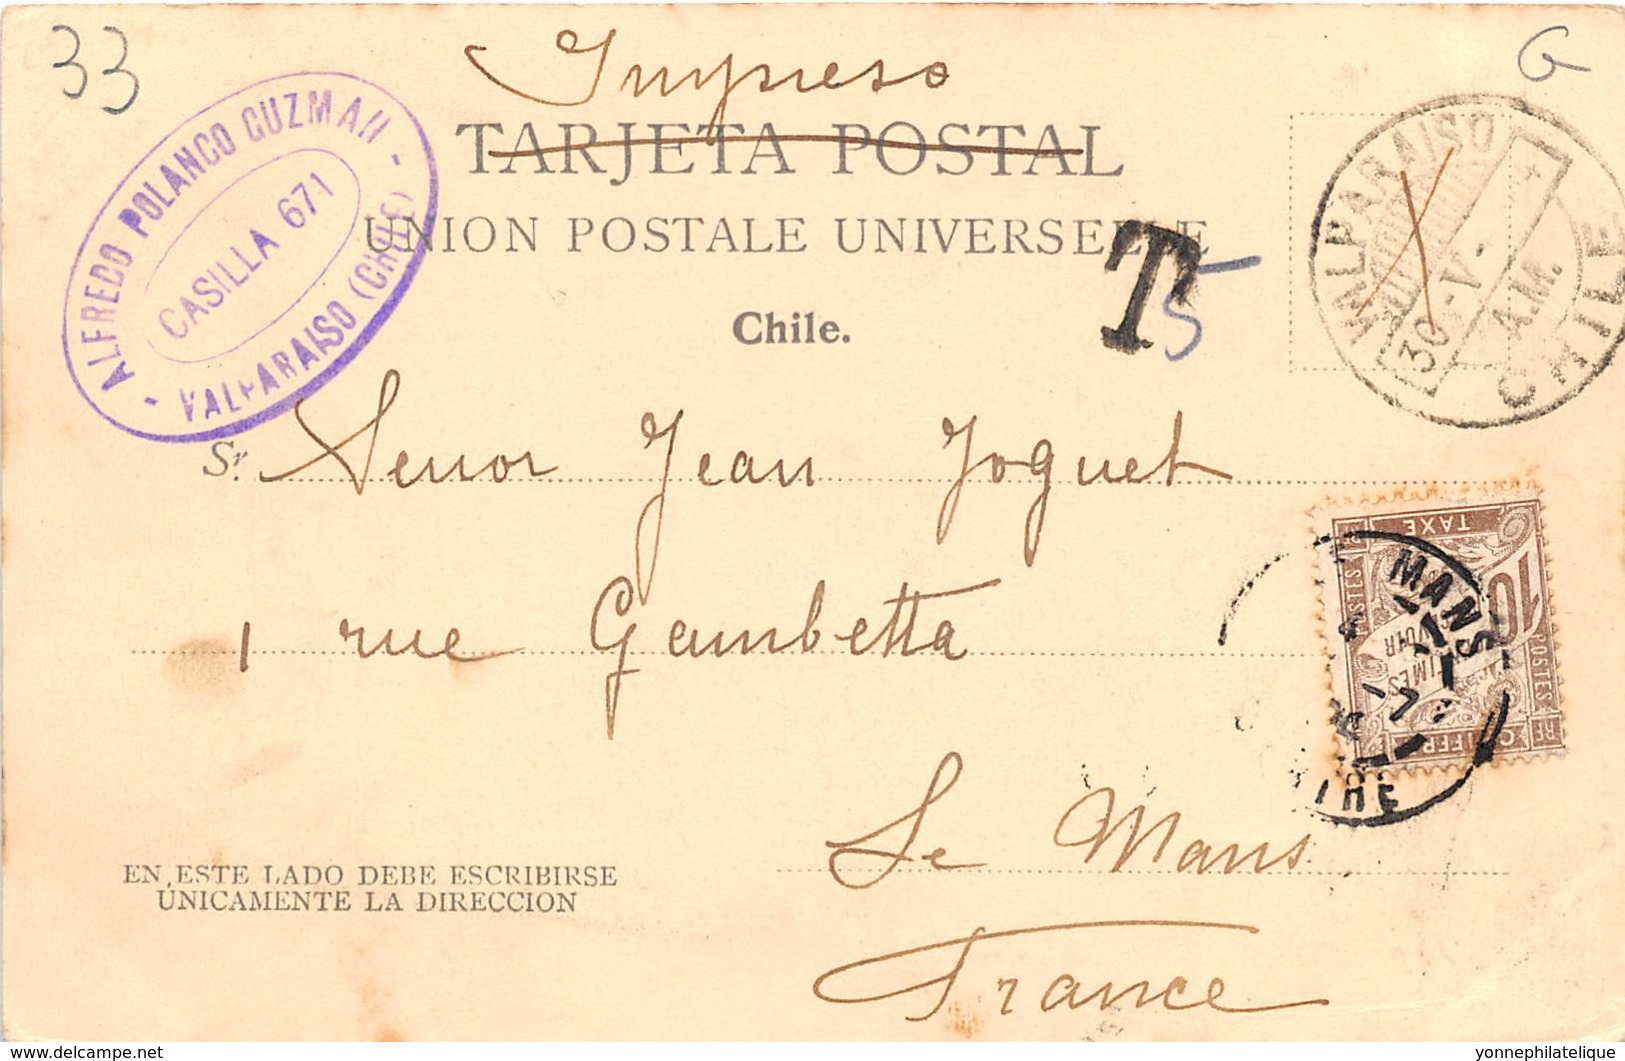 33
G
Impreso
TARJETA POSTAL
UNION POSTALE UNIVERSELLE
Chile.
- ALFREDO POLANCO GUZMAN -
CASILLA 671
VALPARAISO (CHILE)
T
5
VALPARAISO
4
30-V.
A.M.
CHILE
Sr. Senor Jean Joguet
1 rue Gambetta
Le Mans
France
TAXE
10
POSTES
CHIFFRE
MANS
EN ESTE LADO DEBE ESCRIBIRSE
UNICAMENTE LA DIRECCION
yonnephilatelique